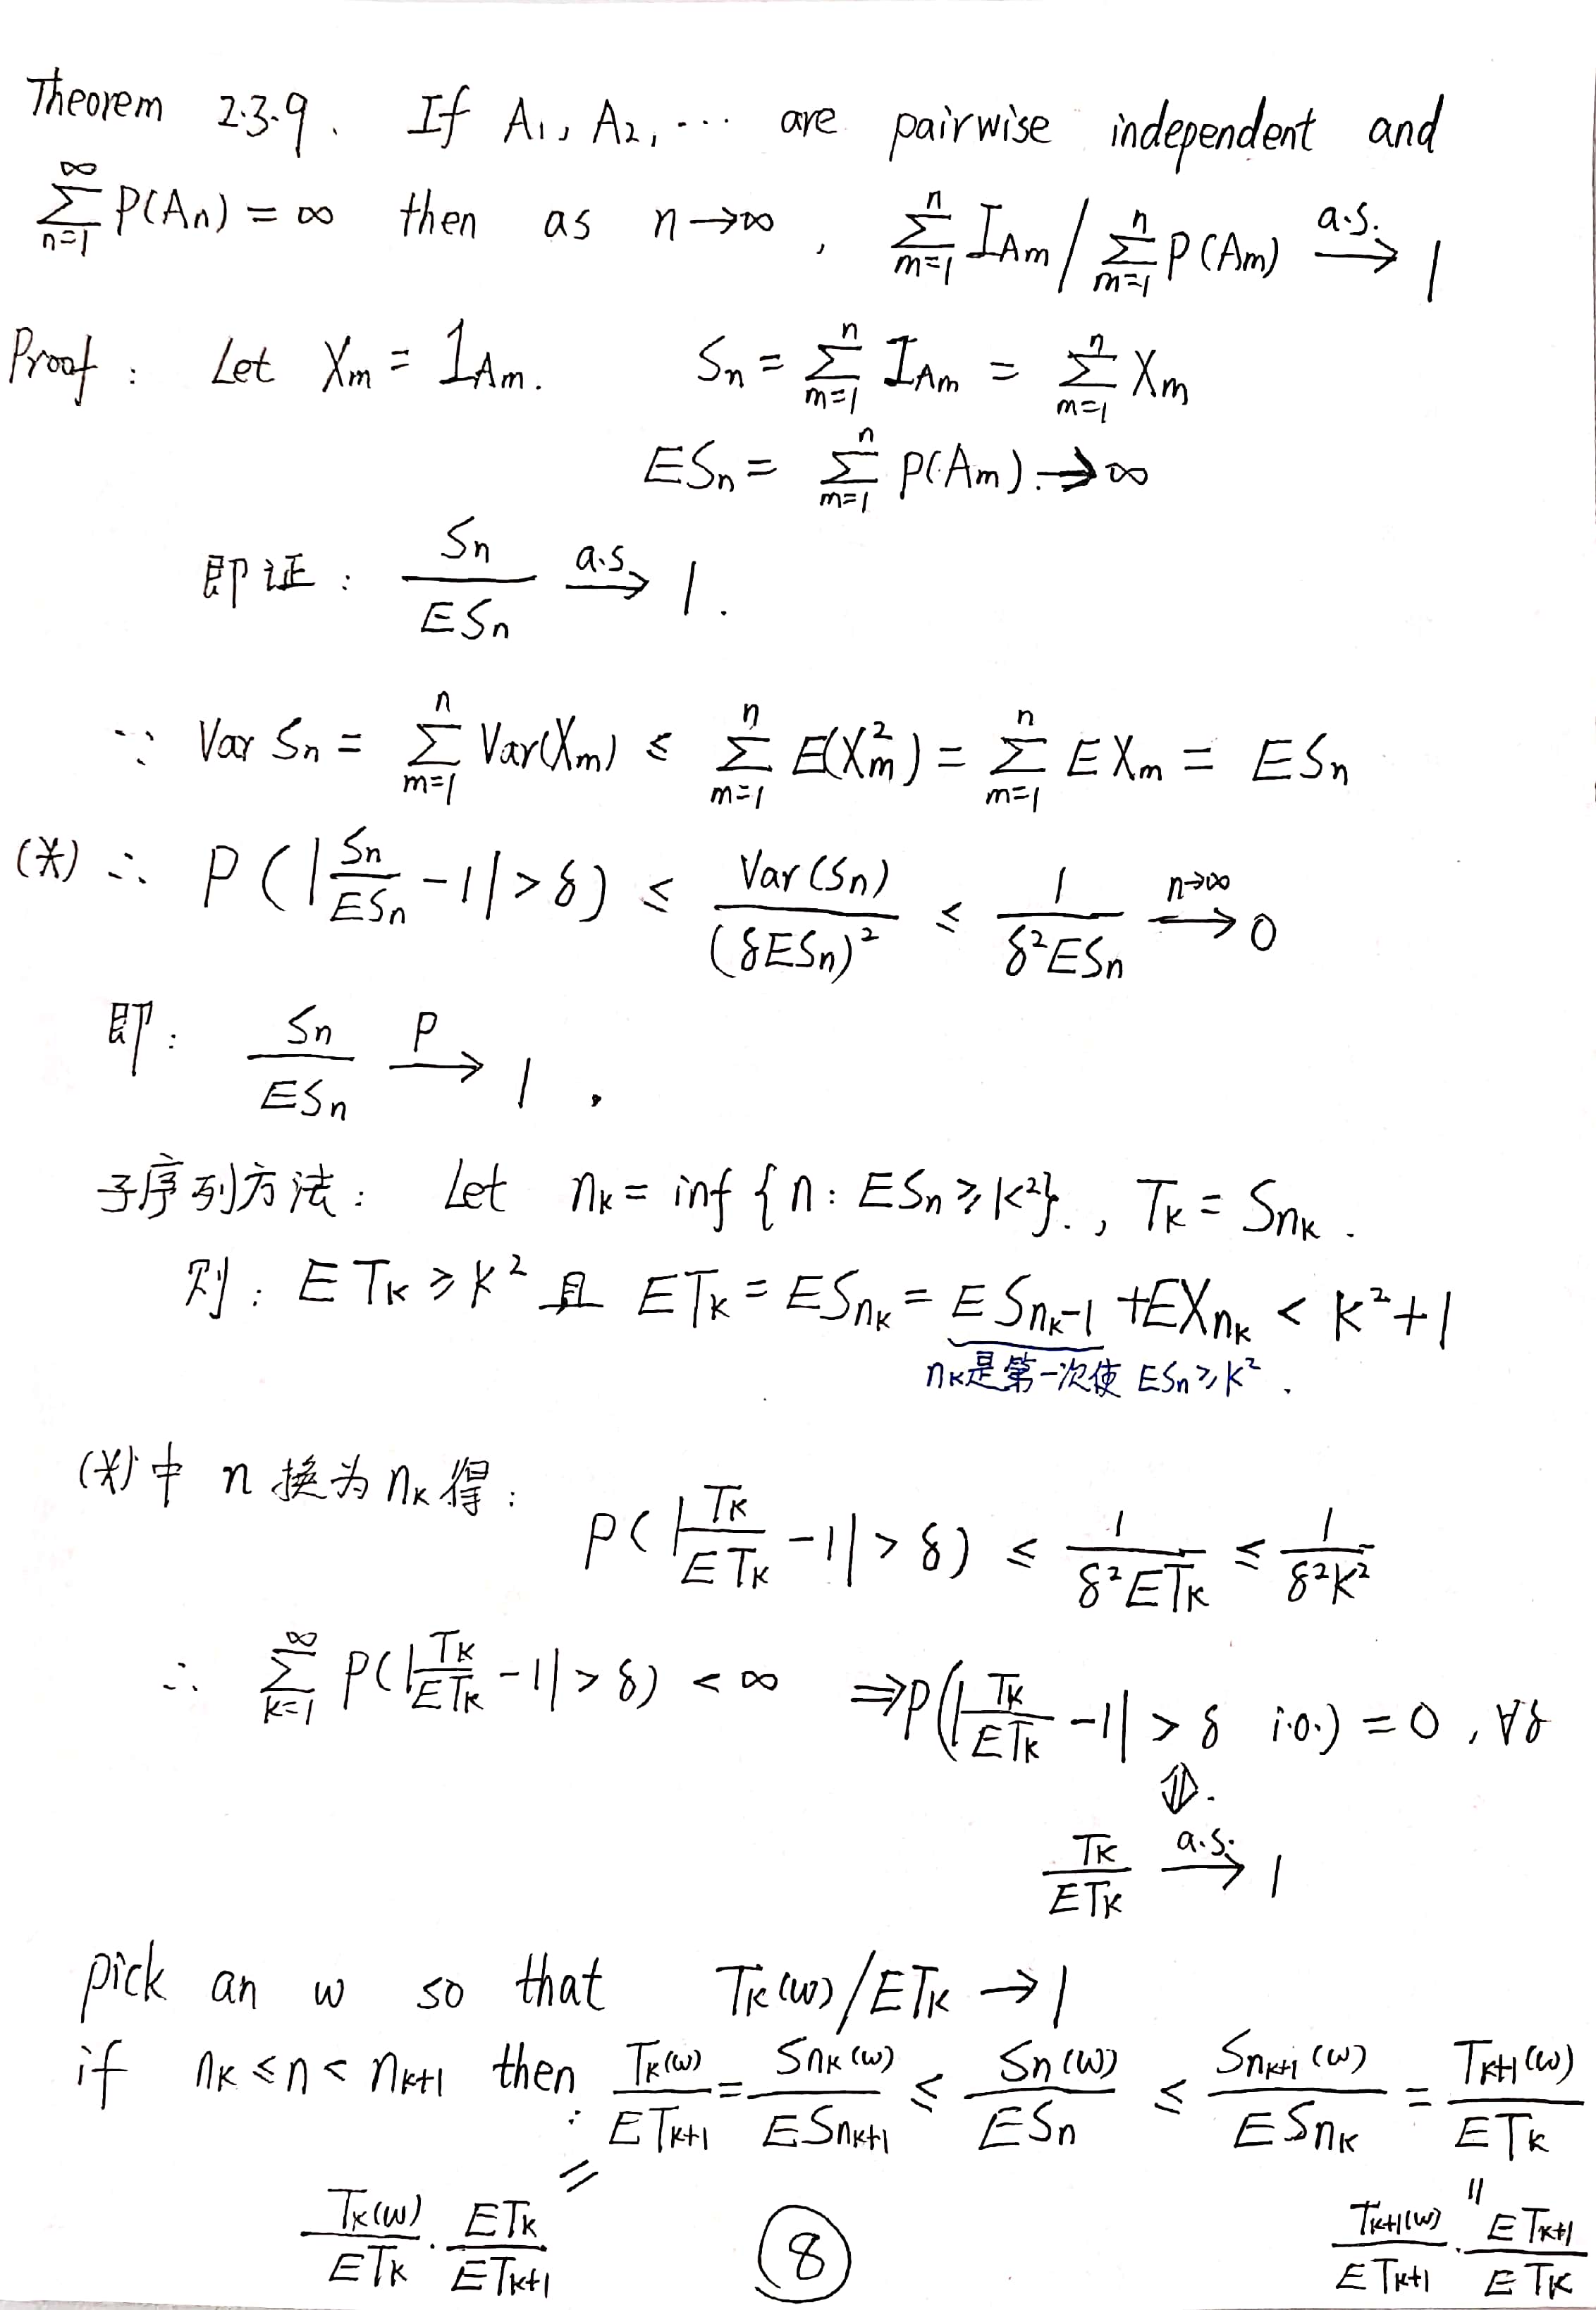 Theorem 2.3.9. If A₁, A₂, ⋯ are pairwise independent and
∑_{n=1}^{∞} P(Aₙ) = ∞ then as n→∞, ∑_{m=1}^{n} I_{Am} / ∑_{m=1}^{n} P(Am) →^{a.s.} 1
Proof: Let Xm = 1_{Am}. Sn = ∑_{m=1}^{n} I_{Am} = ∑_{m=1}^{n} Xm
ESn = ∑_{m=1}^{n} P(Am) → ∞
即证: Sn/ESn →^{a.s.} 1.
∵ Var Sn = ∑_{m=1}^{n} Var(Xm) ≤ ∑_{m=1}^{n} E(Xm²) = ∑_{m=1}^{n} EXm = ESn
(*) ∴ P(|Sn/ESn − 1| > δ) ≤ Var(Sn)/(δESn)² ≤ 1/(δ²ESn) →^{n→∞} 0
即: Sn/ESn →^{P} 1.
子序列方法: Let n_k = inf{n: ESn ≥ k²}., T_k = S_{n_k}.
则: ET_k ≥ k² 且 ET_k = ES_{n_k} = ES_{n_k−1} + EX_{n_k} < k²+1
n_k是第一次使 ESn ≥ k².
(*)中 n 换为 n_k 得:
P(|T_k/ET_k − 1| > δ) ≤ 1/(δ²ET_k) ≤ 1/(δ²k²)
∴ ∑_{k=1}^{∞} P(|T_k/ET_k − 1| > δ) < ∞ ⇒ P(|T_k/ET_k − 1| > δ i.o.) = 0, ∀δ
⇕.
T_k/ET_k →^{a.s.} 1
pick an ω so that T_k(ω)/ET_k → 1
if n_k ≤ n < n_{k+1} then: T_k(ω)/ET_{k+1} = S_{n_k}(ω)/ES_{n_{k+1}} ≤ Sn(ω)/ESn ≤ S_{n_{k+1}}(ω)/ES_{n_k} = T_{k+1}(ω)/ET_k
= =
T_k(ω)/ET_k · ET_k/ET_{k+1} T_{k+1}(ω)/ET_{k+1} · ET_{k+1}/ET_k
⑧